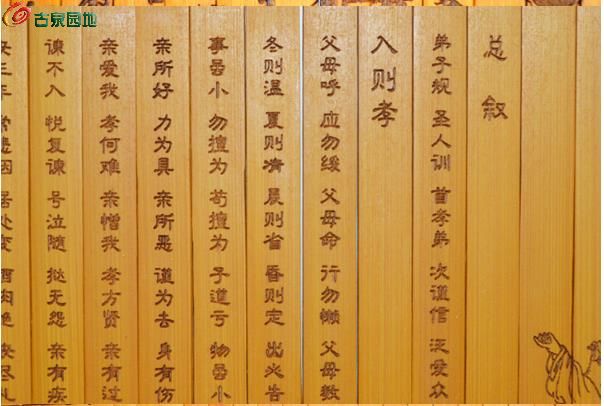 古泉园地
总叙
弟子规 圣人训 首孝弟 次谨信 泛爱众
入则孝
父母呼 应勿缓 父母命 行勿懒 父母教
冬则温 夏则凊 晨则省 昏则定 出必告
事虽小 勿擅为 苟擅为 子道亏 物虽小
亲所好 力为具 亲所恶 谨为去 身有伤
亲爱我 孝何难 亲憎我 孝方贤 亲有过
谏不入 悦复谏 号泣随 挞无怨 亲有疾